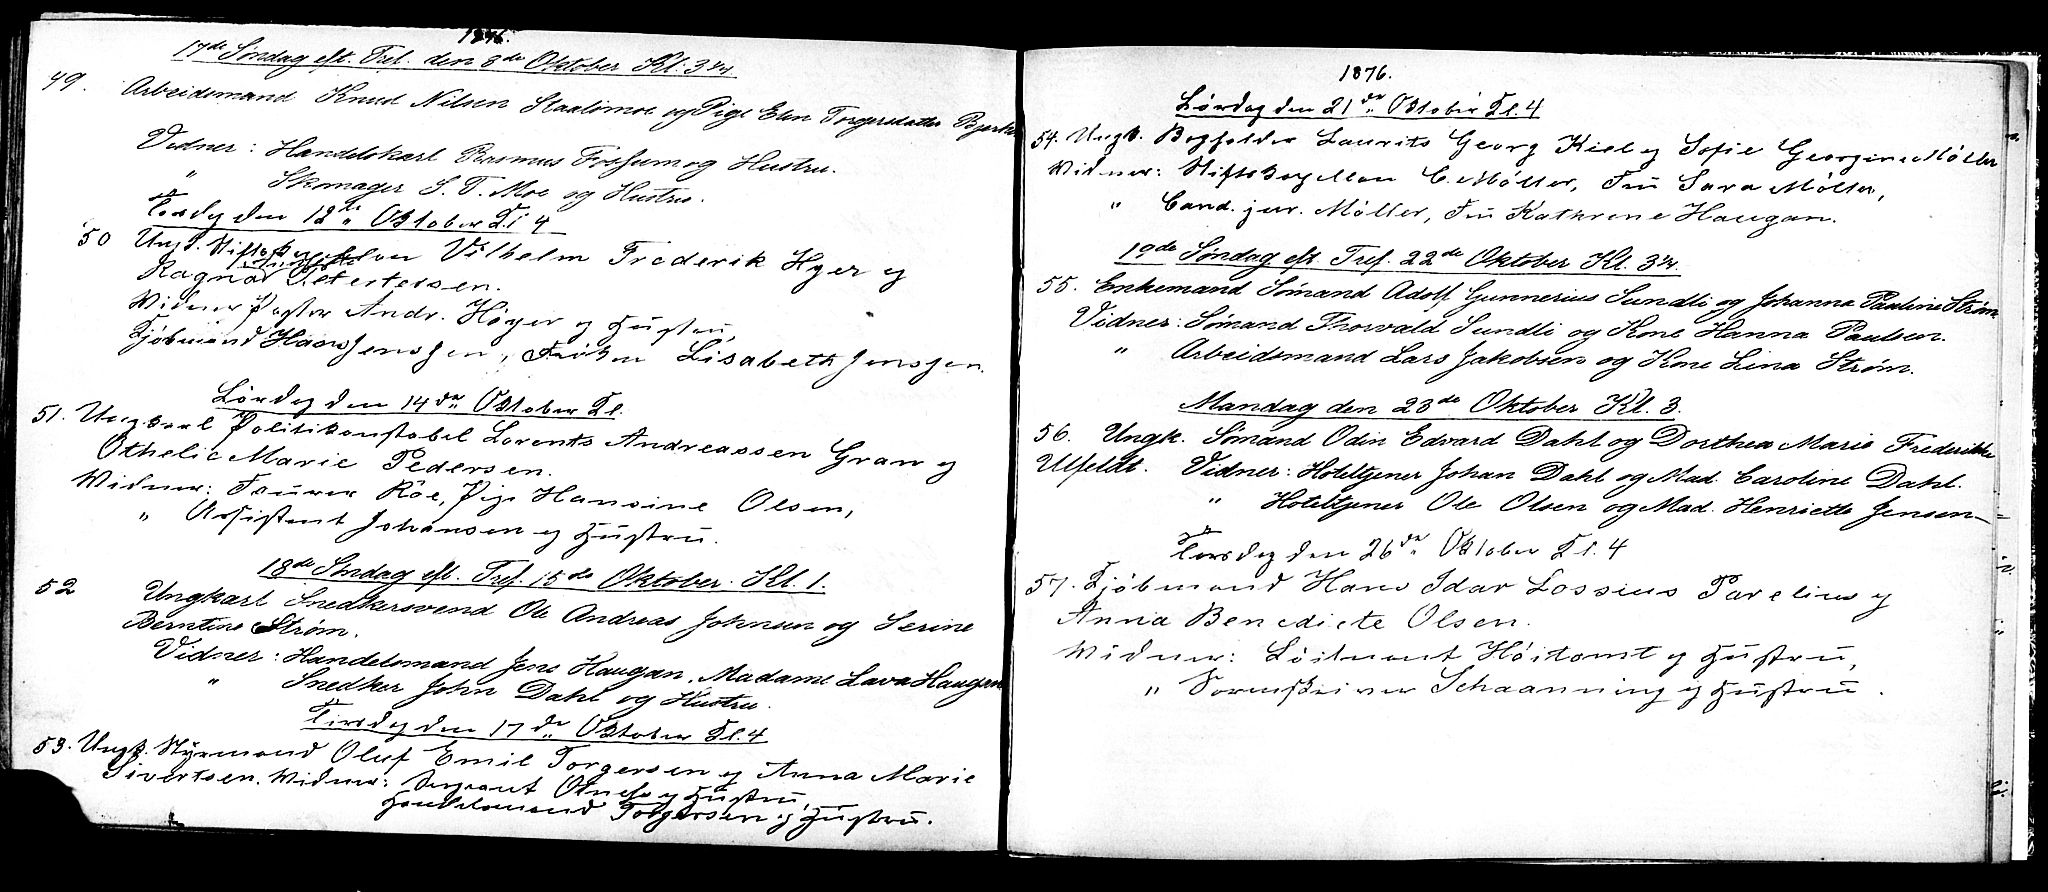 1876.
17de Søndag eft. Tref. den 8de Oktober Kl. 3
49. Arbeidsmand Knud Nilsen Staalimoe og Pige Elen Torgersdatter
Vidner: Handelskarl Rasmus Fossum og Hustru.
" Skomager S. T. Moe og Hustru.
Torsdag den 12te Oktober Kl 4
50 Ungk. Stiftskapellan Vilhelm Frederik Hyer og
Ragna Petersen.
Vidner Pastor Andr. Höyer og Hustru,
Kjøbmand Hans Jenssen, Frøken Lisabeth Jenssen.
Lördag den 14de Oktober Kl.
51. Ungkarl Politikonstabel Lorents Andreassen Gran og
Othelie Marie Pedersen.
Vidner: Röe, Pige Hansine Olsen,
" Assistent Johansen og Hustru.
18de Søndag eft. Tref. 15de Oktober Kl. 1.
52 Ungkarl Snedkersvend Ole Andreas Johnsen og Serine
Berntine Strøm.
Vidner: Handelsmand Jens Haugan, Madame Lava Haugan
" Snedker John Dahl og Hustru.
Tirsdag den 17de Oktober Kl. 4
53. Ungk. Styrmand Oluf Emil Torgersen og Anna Marie
Sivertsen. Vidner: Sergeant og Hustru,
Handelsmand Torgersen og Hustru.
1876.
Lördag den 21de Oktober Kl. 4
54. Ungk. Bogholder Laurits Georg Kiel og Sofie Georgine Möller
Vidner: Stiftskapellan C. Möller, Fru Sara Möller,
" Cand. jur. Möller, Fru Kathrene Haugan.
19de Søndag eft. Tref. 22de Oktober Kl. 3
55. Enkemand Sømand Adolf Gunnerius Sundli og Johanna Pauline Strøm
Vidner: Sømand Thorvald Sundli og Kone Hanna Paulsen.
" Arbeidsmand Lars Jakobsen og Kone Lina Strøm.
Mandag den 23de Oktober Kl. 3.
56. Ungk. Sømand Odin Edvard Dahl og Dorthea Marie Frederikke
Ulfeldt. Vidner: Hoteltjener Johan Dahl og Mad. Caroline Dahl.
" Hoteltjener Ole Olsen og Mad. Henriette Jensen
Torsdag den 26de Oktober Kl. 4
57. Kjöbmand Hans Idar Lossius Parelius og
Anna Benedicte Olsen.
Vidner: Löitnant Höitomt og Hustru,
" Sorenskriver Schaanning og Hustru.